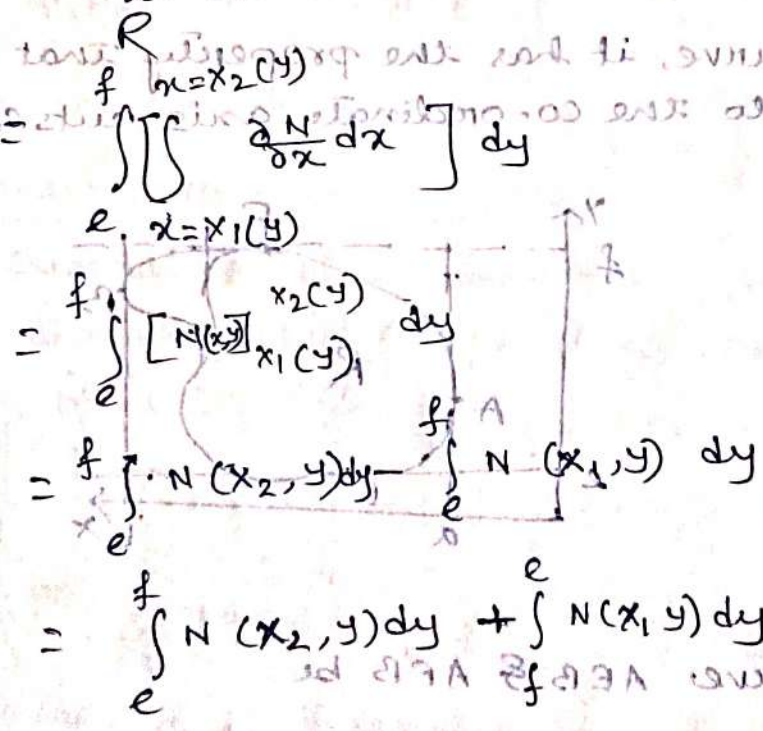 R
= ∫_e^f [ ∫_{x=x₁(y)}^{x=x₂(y)} ∂N/∂x dx ] dy
= ∫_e^f [N(x,y)]_{x₁(y)}^{x₂(y)} dy
= ∫_e^f N(x₂,y)dy - ∫_e^f N(x₁,y) dy
= ∫_e^f N(x₂,y)dy + ∫_f^e N(x₁ y)dy